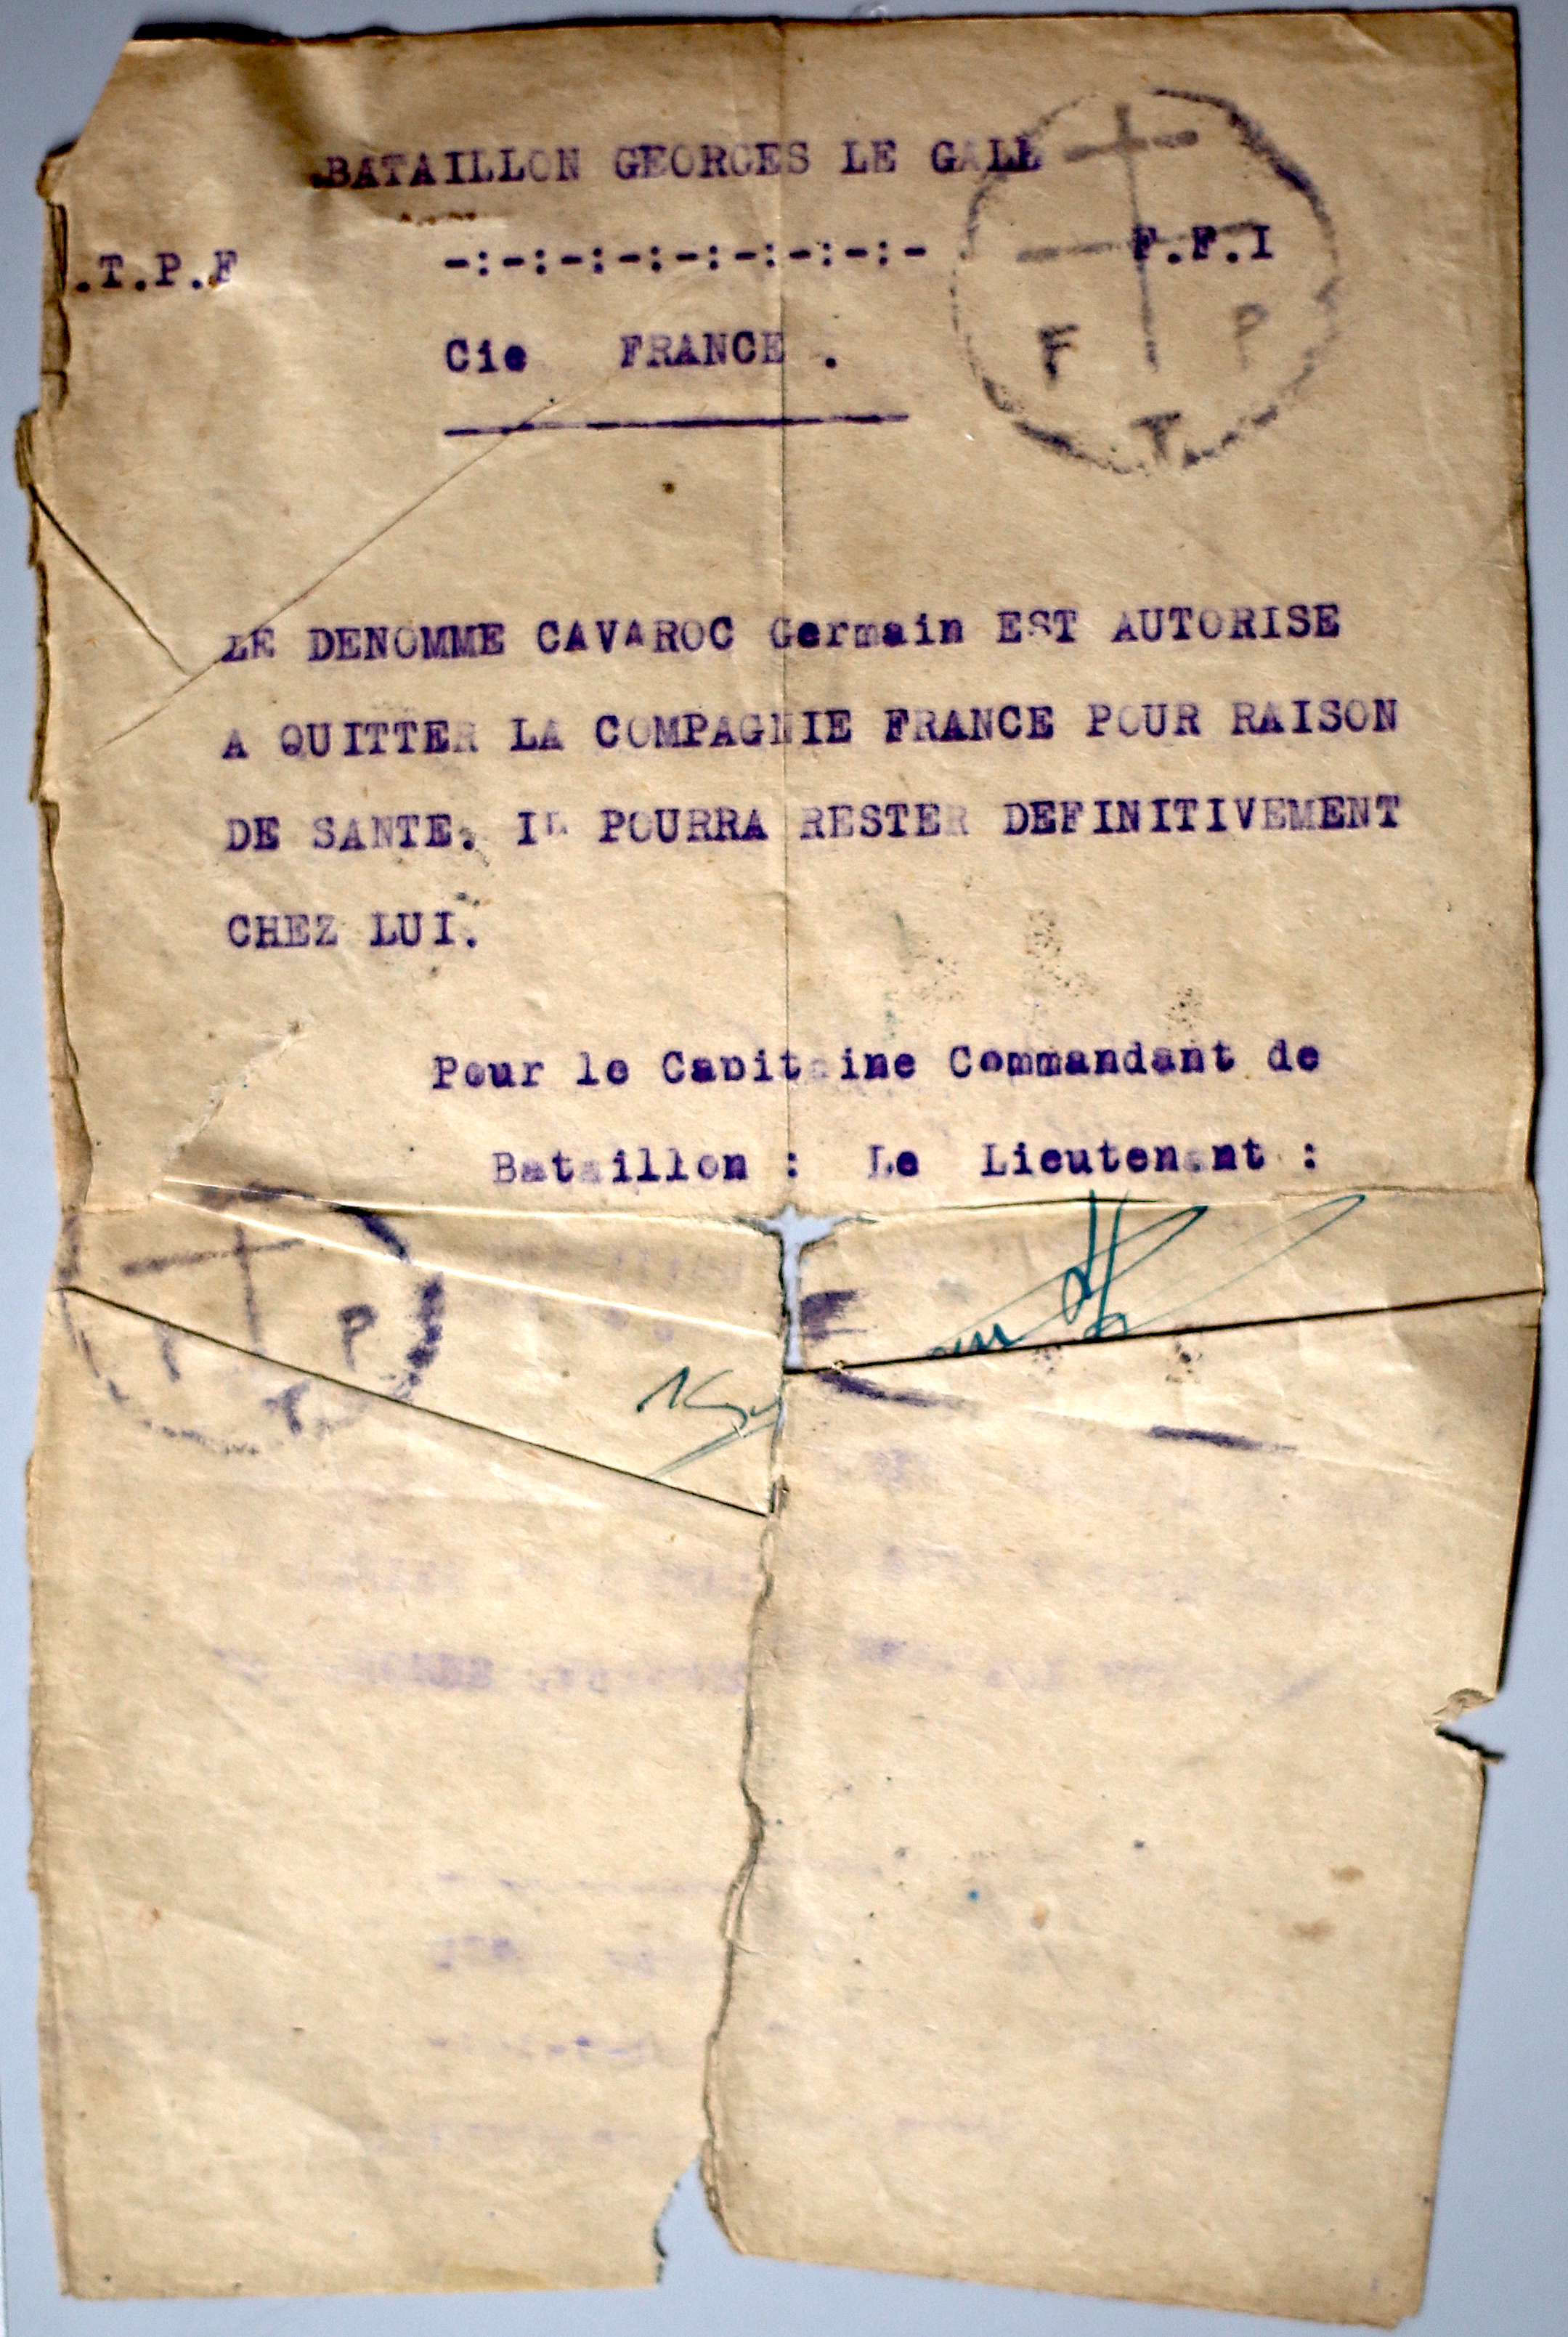 BATAILLON GEORGES LE GALL
.T.P.F -:-:-:-:-:-:-:-:- F.F.I
Cie FRANCE .
F P
T
LE DENOMME CAVAROC Germain EST AUTORISE
A QUITTER LA COMPAGNIE FRANCE POUR RAISON
DE SANTE. IL POURRA RESTER DEFINITIVEMENT
CHEZ LUI.
Pour le Capitaine Commandant de
Bataillon : Le Lieutenant :
F P
T